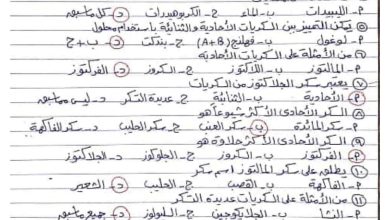 م- الليبيدات ب- الماء ج- الكربوهيدرات د- كل ما سبق
⑤ يمكن التمييز بين السكريات الأحادية والثنائية باستخدام محلول
م- لوغول ب- فهلنج (A+B) ج- بندكت د- ب + ج
⑥ من الأمثلة على السكريات الأحادية
م- المالتوز ب- اللاكتوز ج- السكروز د- الفركتوز
⑦ يعتبر سكر الجلاكتوز من السكريات
م- الأحادية ب- الثنائية ج- عديدة التسكر د- ليس مما سبق
⑧ السكر الأحادي الأكثر شيوعاً هو
م- سكر المائدة ب- سكر العنب ج- سكر الحليب د- سكر الفاكهة
⑨ السكر الأحادي الأكثر حلاوة هو
م- الفركتوز ب- السكروز ج- الجلوكوز د- الجلاكتوز
⑩ يطلق على سكر المالتوز اسم سكر
م- الفاكهة ب- القصب ج- الحليب د- الشعير
⑪ من الأمثلة على السكريات عديدة التسكر
م- النشا ب- الجلايكوجين ج- السليلوز د- جميع ما سبق